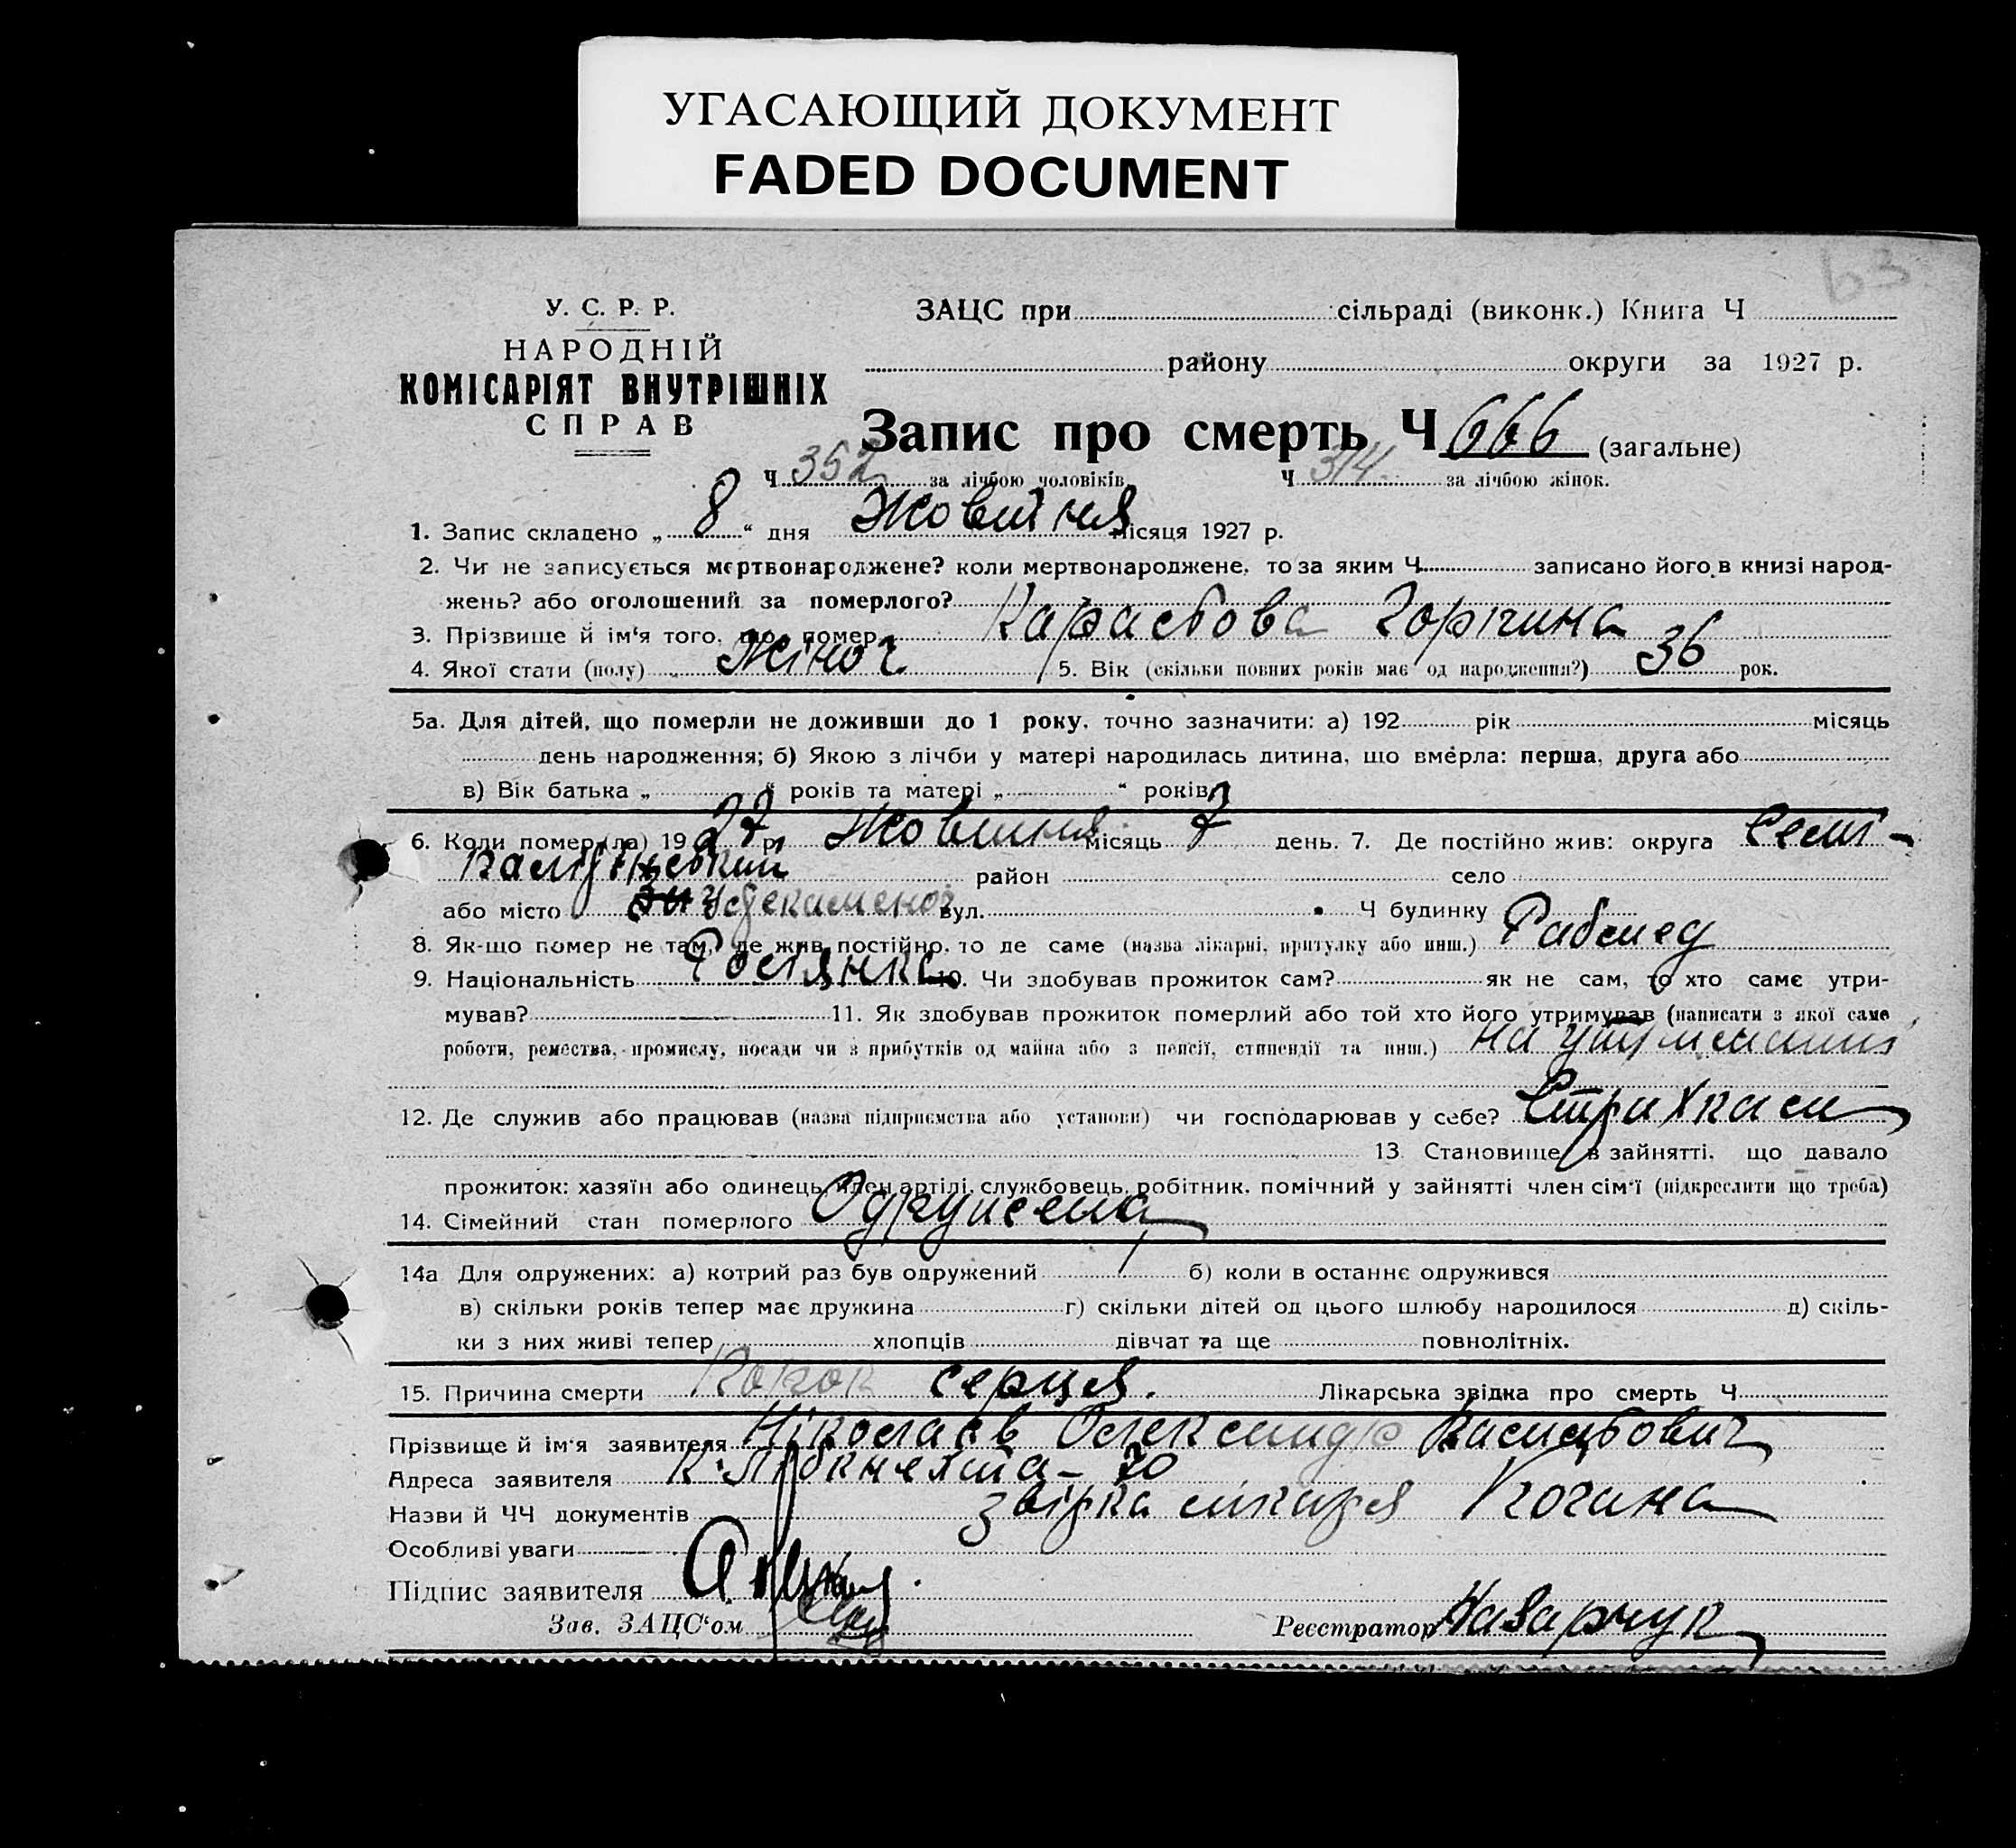 УГАСАЮЩИЙ ДОКУМЕНТ
FADED DOCUMENT
63
У. С. Р. Р.
НАРОДНІЙ
КОМІСАРІЯТ ВНУТРІШНІХ
СПРАВ
ЗАЦС при сільраді (виконк.) Книга Ч
району округи за 1927 р.
Запис про смерть Ч 666 (загальне)
Ч 352 за лічбою чоловіків Ч 314 за лічбою жінок.
1. Запис складено „ 8 “ дня Жовтня місяця 1927 р.
2. Чи не записується мертвонароджене? коли мертвонароджене, то за яким Ч записано його в книзі народ-
жень? або оголошений за померлого?
3. Прізвище й ім‘я того, що помер
4. Якої стати (полу) Жіноч 5. Вік (скільки повних років має од народження?) 36 рок.
5а. Для дітей, що померли не доживши до 1 року, точно зазначити: а) 192 рік місяць
день народження; б) Якою з лічби у матері народилась дитина, що вмерла: перша, друга або
в) Вік батька „ “ років та матері „ “ років
6. Коли помер(ла) 19 27 р. Жовтня місяць 7 день. 7. Де постійно жив: округа
район село
або місто вул. Ч будинку
8. Як-що помер не там, де жив постійно, то де саме (назва лікарні, притулку або инш.) Рабмед
9. Національність Росіянка 10. Чи здобував прожиток сам? як не сам, то хто саме утри-
мував? 11. Як здобував прожиток померлий або той хто його утримував (написати з якої саме
роботи, ремества, промислу, посади чи з прибутків од майна або з пенсії, стипендії та инш.) на утриманні
12. Де служив або працював (назва підприємства або установи) чи господарював у себе? Страхкаси
13. Становище в зайнятті, що давало
прожиток: хазяїн або одинець, член артілі, службовець, робітник, помічний у зайнятті член сім‘ї (підкреслити що треба)
14. Сімейний стан померлого Одружена
14а Для одружених: а) котрий раз був одружений 1 б) коли в останнє одружився
в) скільки років тепер має дружина г) скільки дітей од цього шлюбу народилося д) скіль-
ки з них живі тепер хлопців дівчат та ще повнолітніх.
15. Причина смерти Порок серця. Лікарська звідка про смерть Ч
Прізвище й ім‘я заявителя Ніколаєв Олександр
Адреса заявителя К. Лібкнехта - 70
Назви й ЧЧ документів звідка лікаря Когана
Особливі уваги
Підпис заявителя
Зав. ЗАЦС‘ом Реєстратор Назарчук